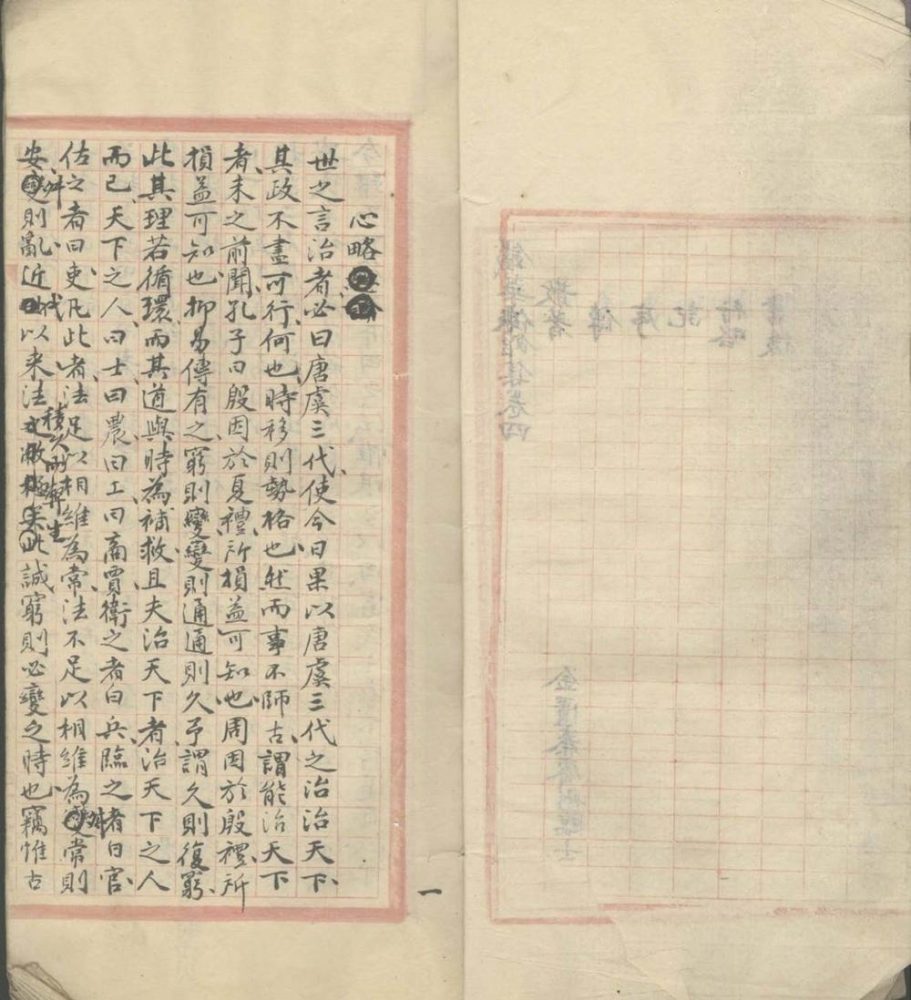 心略
世之言治者必曰唐虞三代使今日果以唐虞三代之治治天下
其政不盡可行何也時移則勢格也然而事不師古謂能治天下
者未之前聞孔子曰殷因於夏禮所損益可知也周因於殷禮所
損益可知也抑易傳有之窮則變變則通通則久予謂久則復窮
此其理若循環而其道與時為補救且夫治天下者治天下之人
而已天下之人曰士曰農曰工曰商賈衛之者曰兵臨之者曰官
佐之者曰吏凡此者法足以相維為常法不足以相維為舛常則
安舛則亂近代以來法積久而弊生此誠窮則必變之時也竊惟古
一